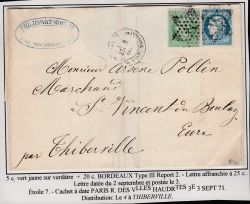 Monsieur Arsène Pollin
Marchand
à St Vincent du Boulay
Eure
par Thiberville
5 c. vert jaune sur verdâtre + 20 c. BORDEAUX Type III Report 2. - Lettre affranchie à 25 c.
Lettre datée du 2 septembre et postée le 3.
Étoile 7. - Cachet à date PARIS R. DES VLLES HAUDRTES 3E 3 SEPT 71.
Distribution: Le 4 à THIBERVILLE.